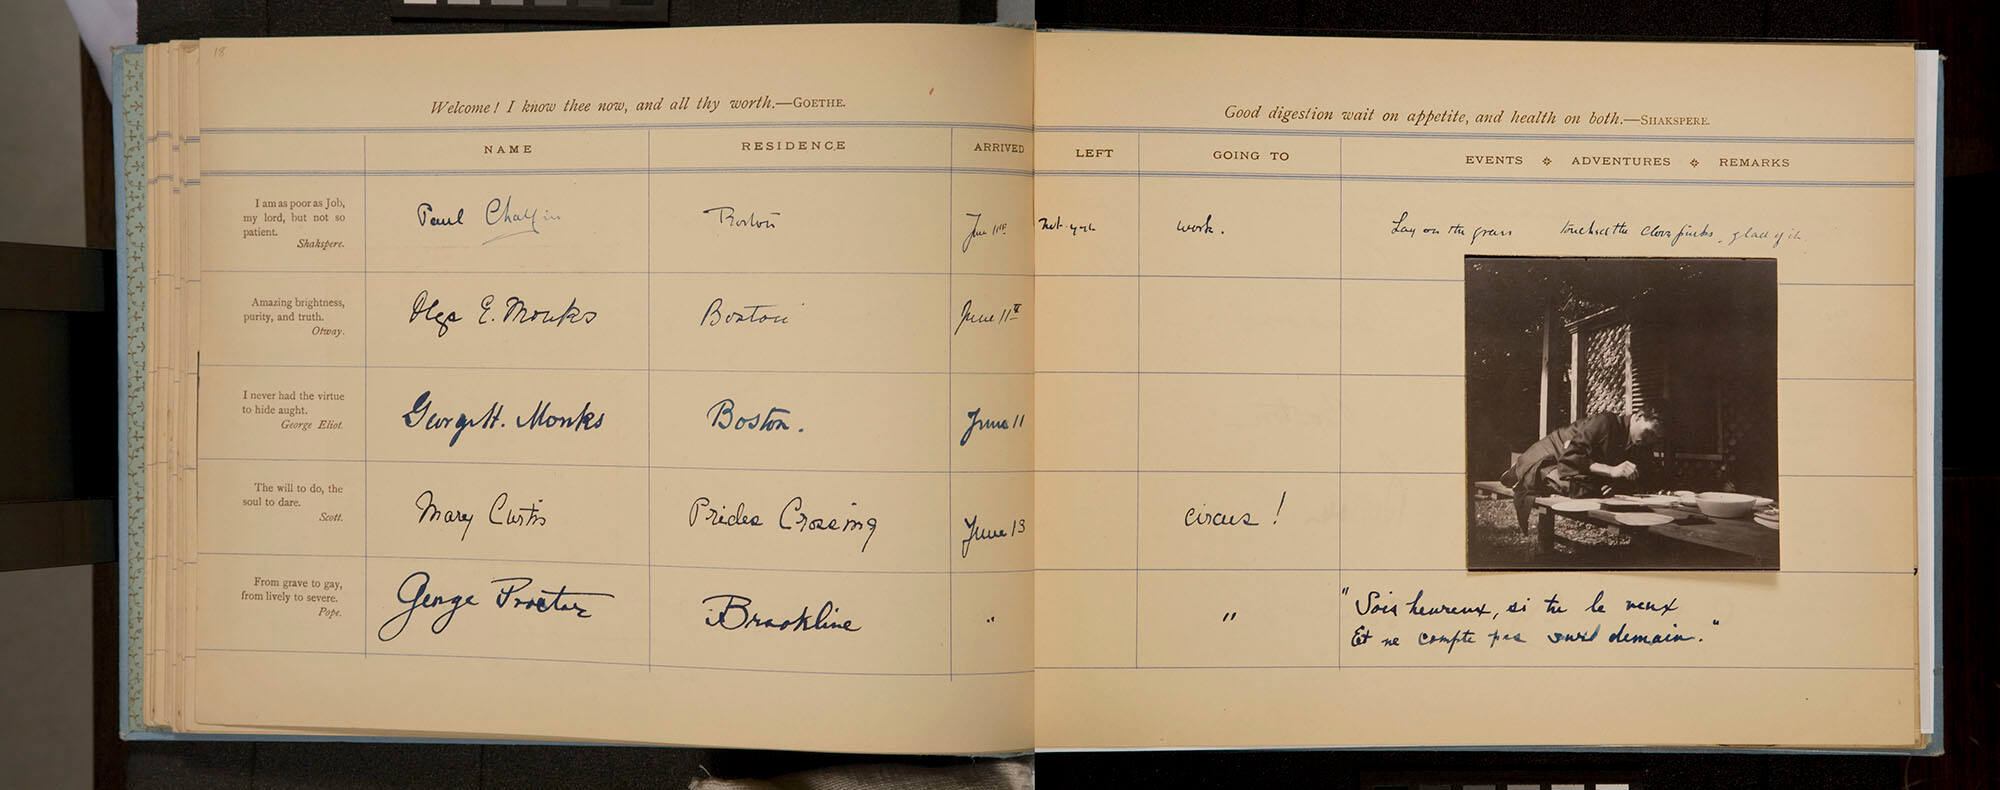 18
Welcome! I know thee now, and all thy worth.—GOETHE.
NAME RESIDENCE ARRIVED
I am as poor as Job,
my lord, but not so
patient.
Shakspere.
Paul Chalfin Boston June 11th
Amazing brightness,
purity, and truth.
Otway.
Olga E. Monks Boston June 11th
I never had the virtue
to hide aught.
George Eliot.
George H. Monks Boston. June 11
The will to do, the
soul to dare.
Scott.
Mary Curtis Prides Crossing June 13
From grave to gay,
from lively to severe.
Pope.
George Proctor Brookline "
Good digestion wait on appetite, and health on both.—SHAKSPERE.
LEFT GOING TO EVENTS ADVENTURES REMARKS
Not-yet work. Lay on the grass touched the clove pinks, glad of it.
circus!
" "Sois heureux, si tu le veux
Et ne compte pas sur demain."